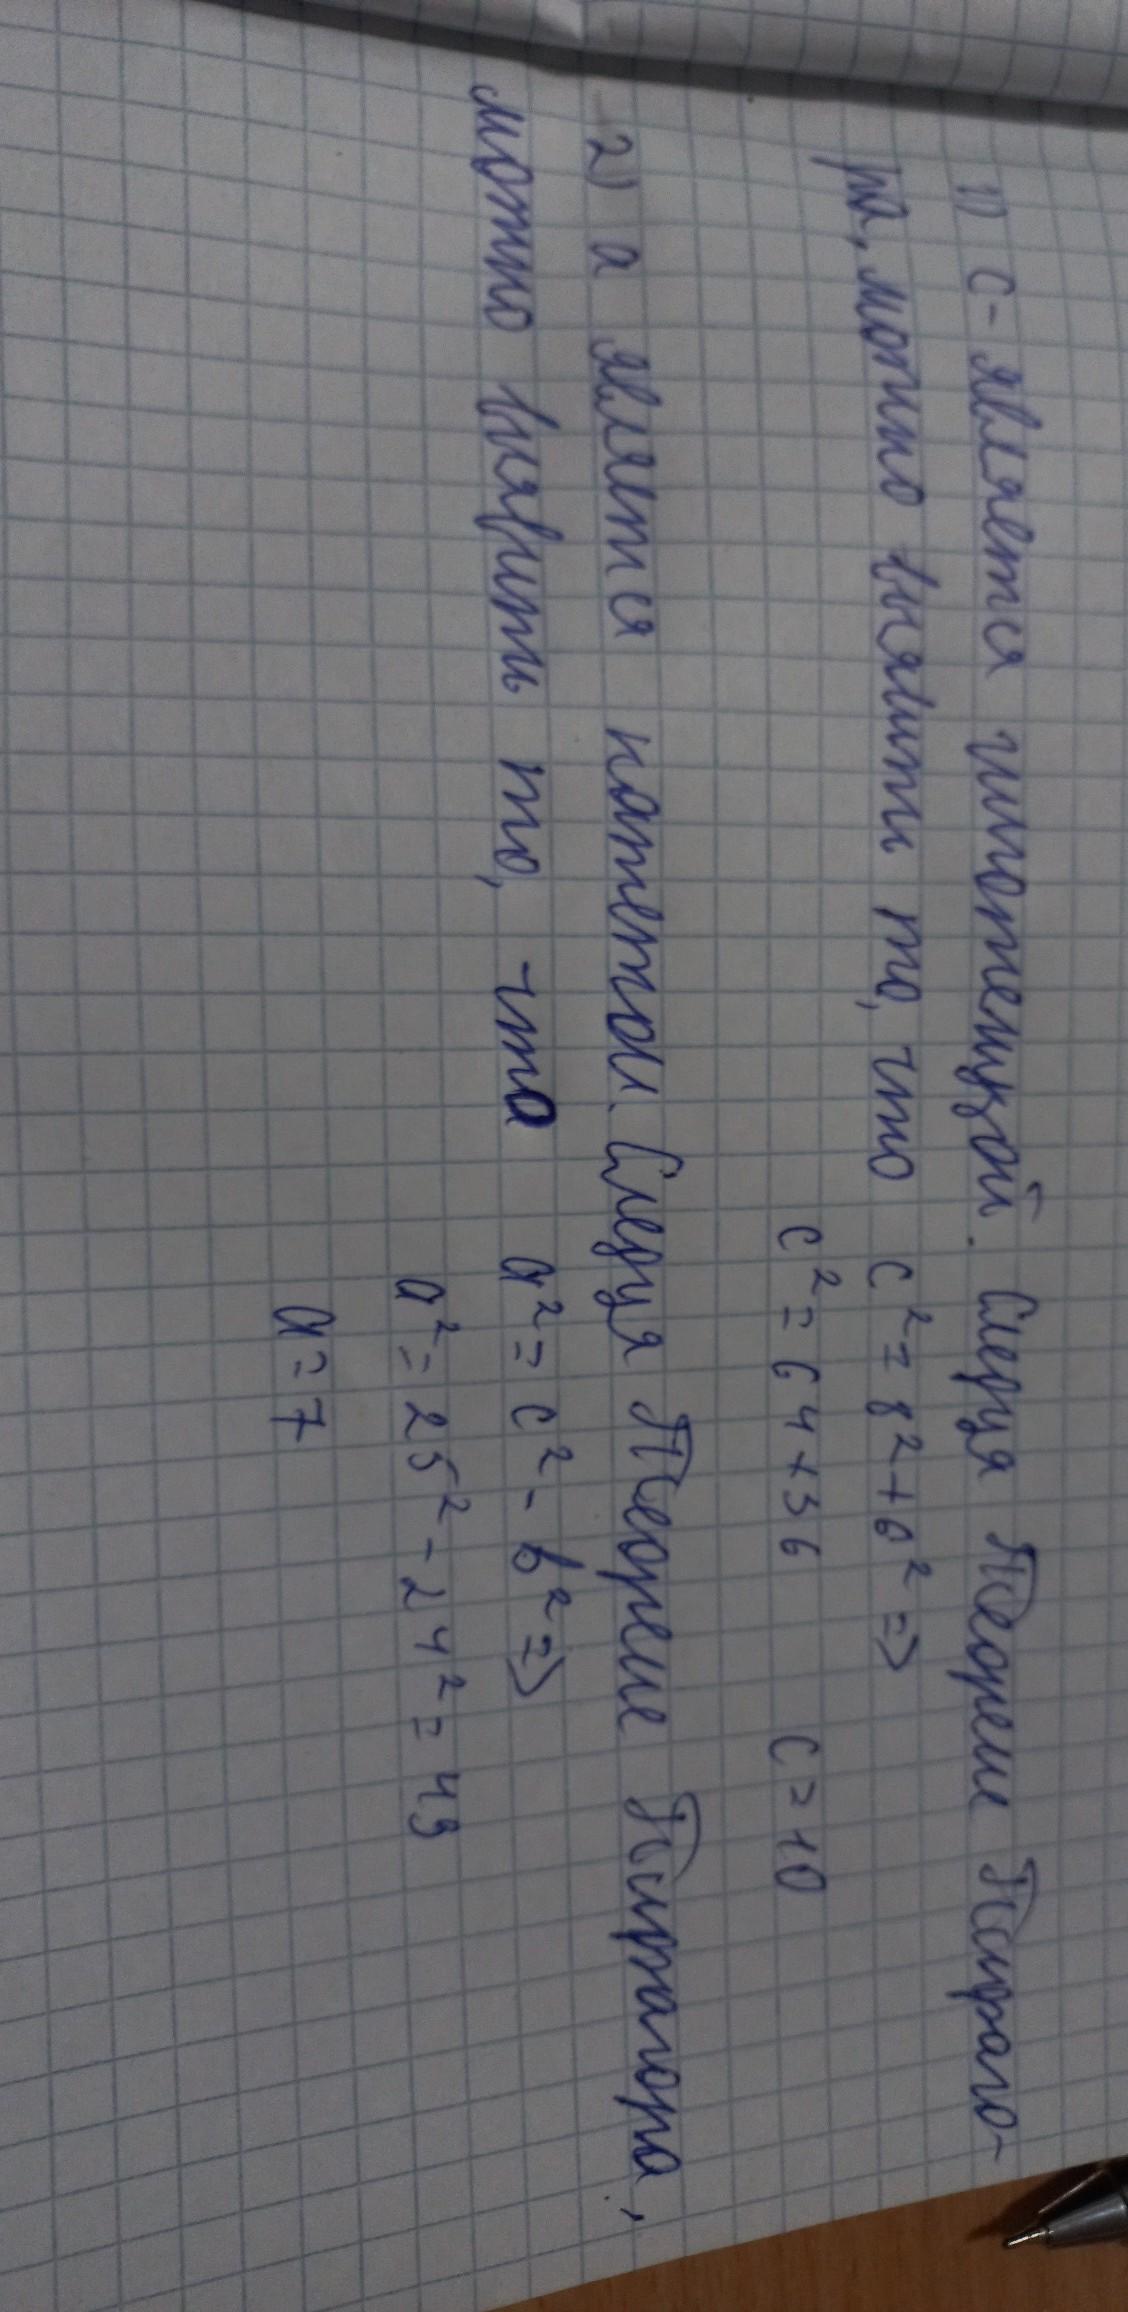 1) с- является гипотенузой. Следуя Теореме Пифаго-
ра, можно выявить то, что c²= 8²+6² =>
c²= 64+36 c=10
2) а является катетом. Следуя Теореме Пифагора,
можно выявить то, что a²= c²- b² =>
a²= 25²-24²= 49
a=7